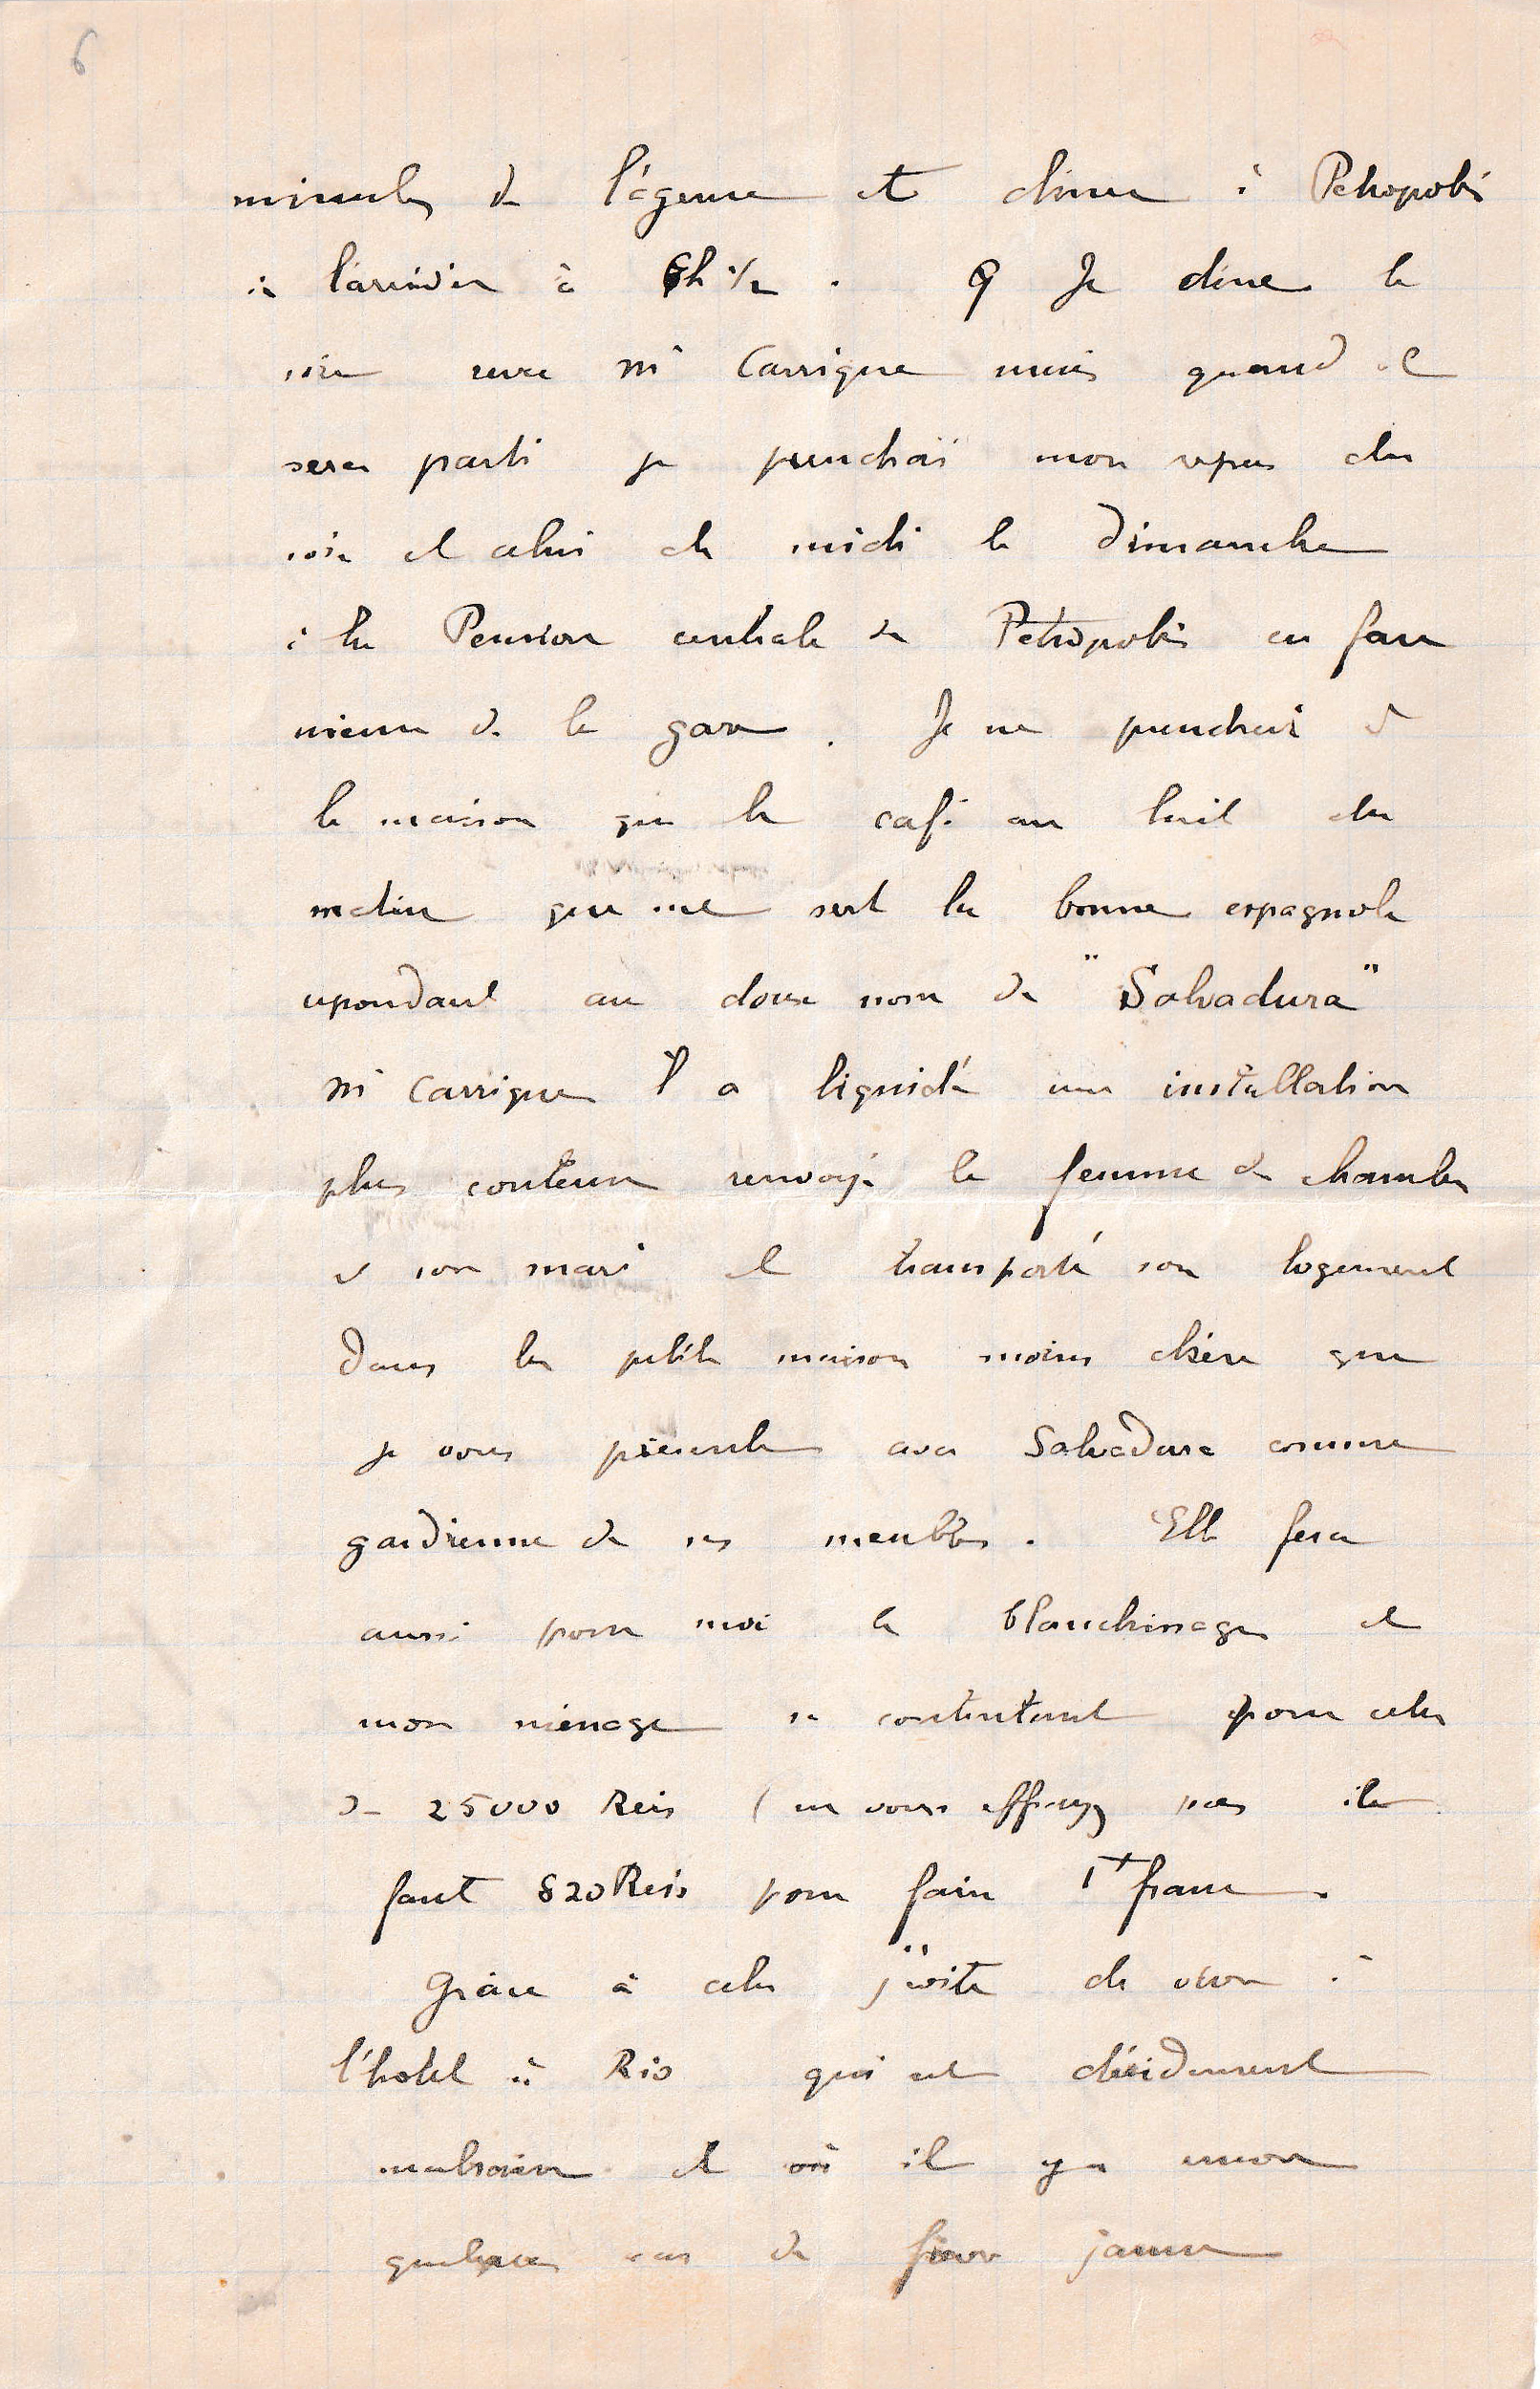 6
minutes de l'agence et diner à Petropolis
à l'arrivée à 6h 1/2 . Je dine le
soir avec Mr Carrigue mais quand il
sera parti je prendrai mon repas du
soir et celui de midi le dimanche
à la Pension centrale de Petropolis en face
même de la gare . Je ne prendrai à
la maison que le café au lait du
matin que me sert la bonne espagnole
repondant au doux nom de "Salvadura"
Mr Carrigue a liquidé une installation
plus couteuse renvoyé la femme de chambre
et son mari et transporté son logement
dans la petite maison moins chère que
je vous présente avec Salvadura comme
gardienne de ses meubles . Elle fera
aussi pour moi le blanchissage et
mon ménage se contentant pour cela
de 25000 Reis ( ne vous effrayez pas il
faut 620 Reis pour faire 1 franc .
Grâce à cela j'évite de vivre à
l'hotel à Rio qui est décidement
malsain et où il y a encore
quelques cas de fièvre jaune